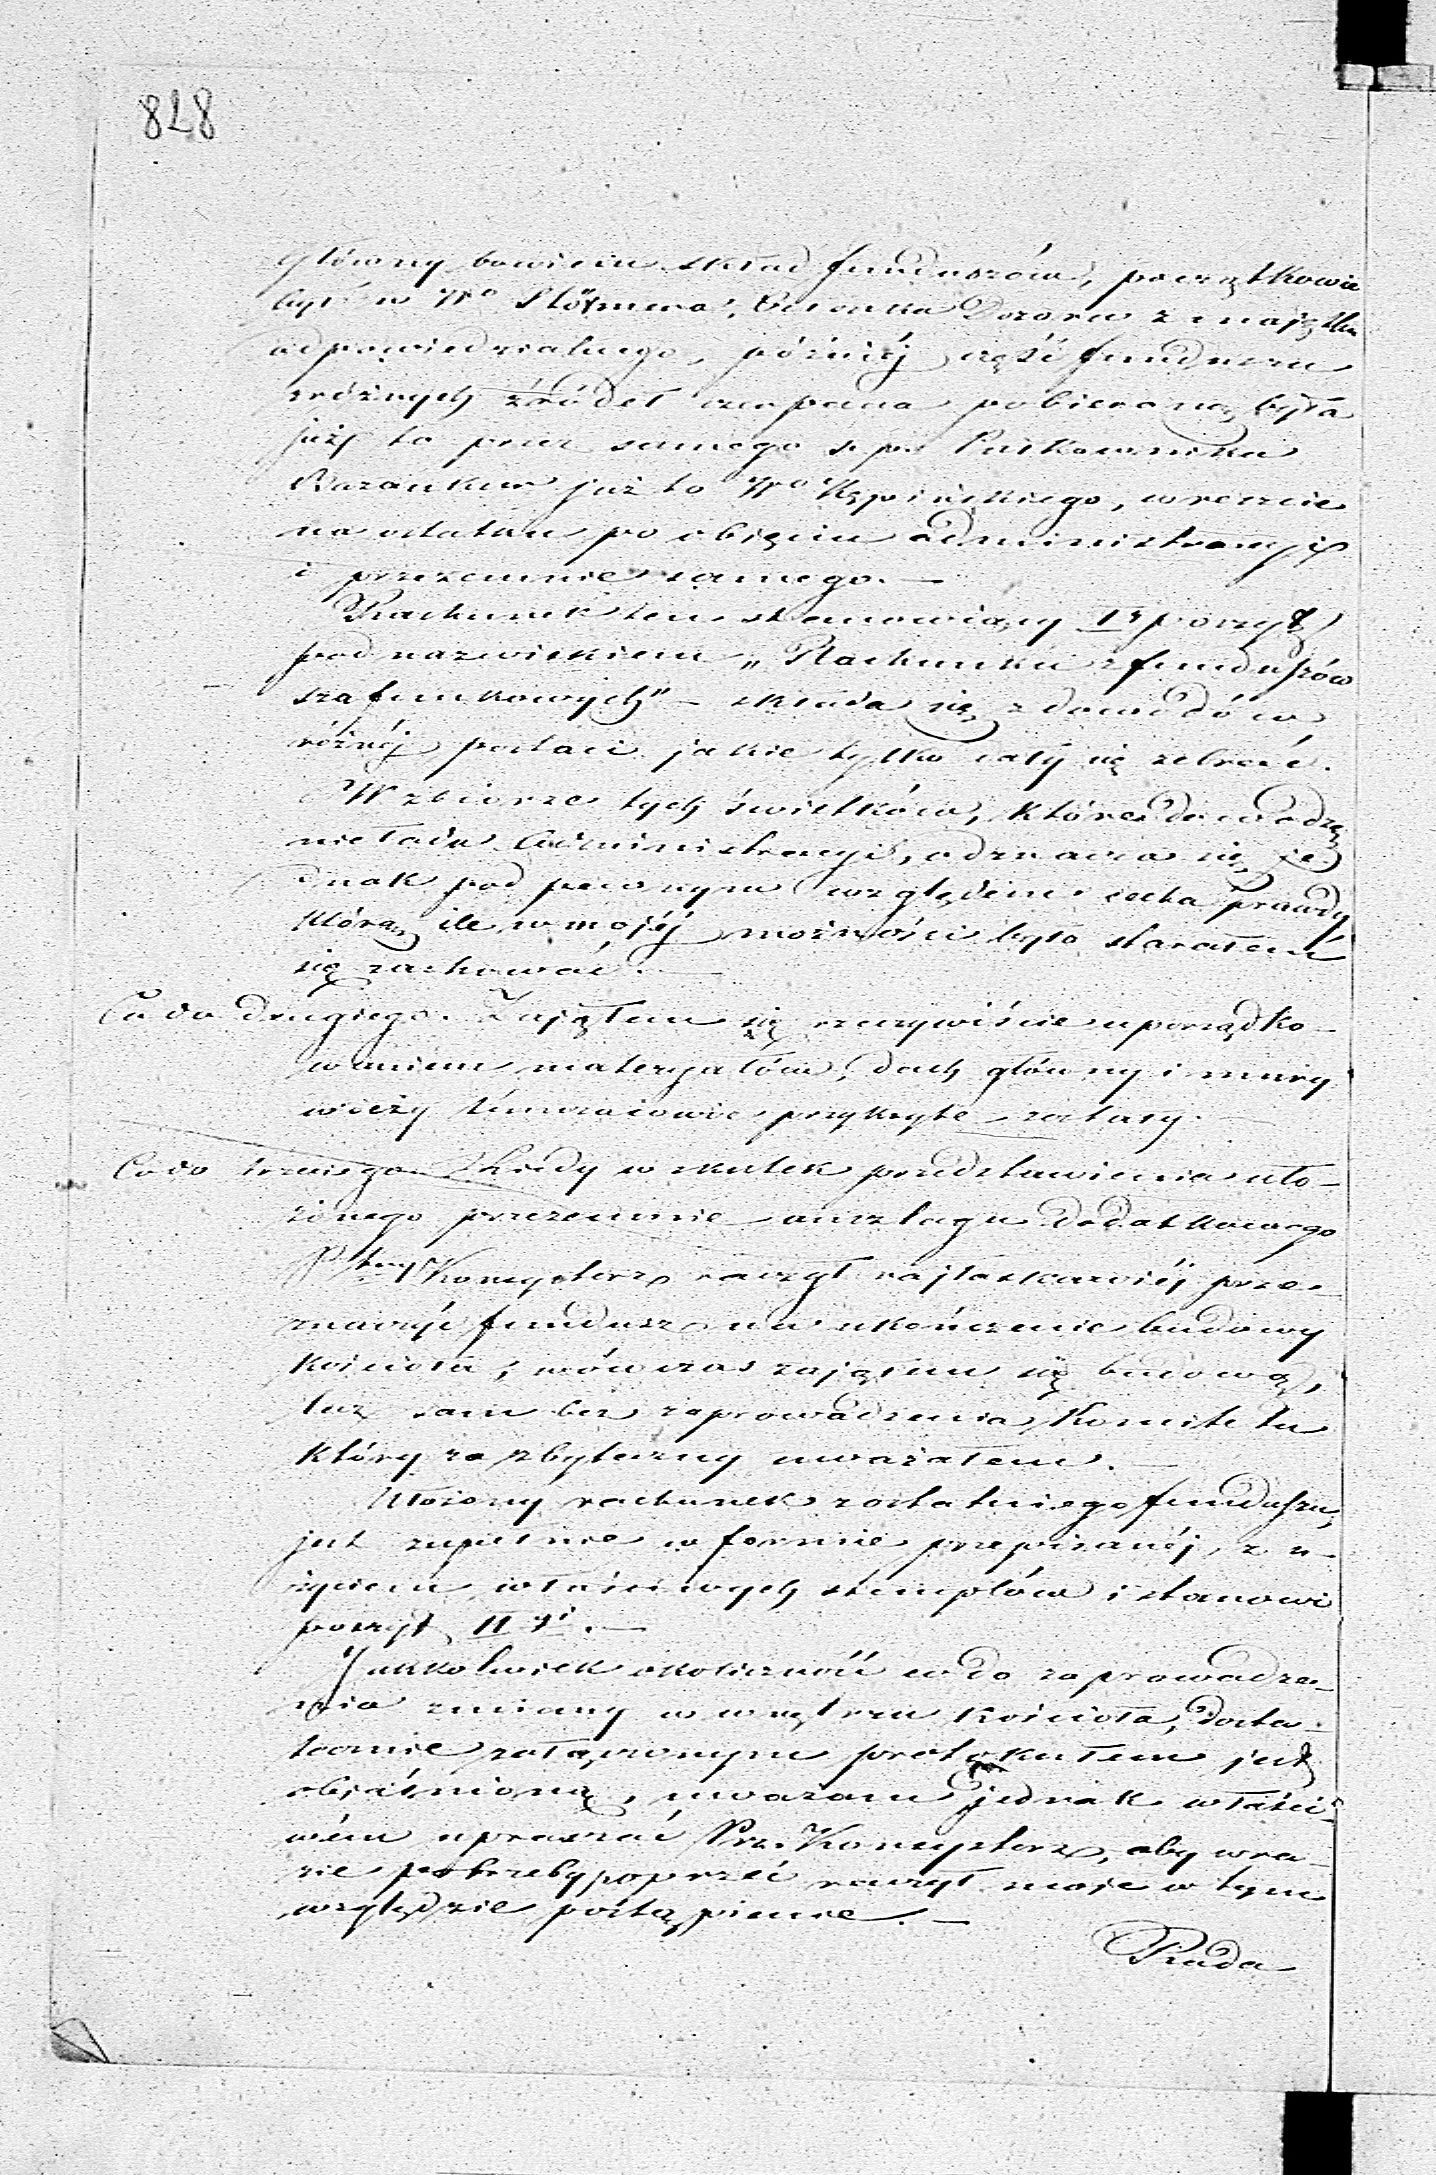 828
główny bowiem skład funduszów, początkowie
był u Wo Członka Dozoru z majątku
odpowiedzialnego, później część funduszu
zróżnych źródeł czerpana pobieraną była
już to przez samego ś. p. Pułkownika
już to Wo Kępińskiego, wreszcie
na ostatku po objęciu administracyi
i przezemnie samego. —
Rachunek ten stanowiący I poszyt
pod nazwiskiem „Rachunku z funduszów
szafunkowych" — składa się z dowodów
różnéj postaci jakie tylko dały się zebrać.
W zbiorze tych świstków, które dowodzą
nieładu Administracyi, odznacza się je
dnak pod pewnym względem cecha prawdy
którą ile w mojéj możności było starałem
się zachować. —
Co do drugiego. Zająłem się rzeczywiście uporządko-
waniem materyałów, dach główny i mury
wieży tymczasowie przykryte zostały. —
Co do trzeciego. Kiedy w skutek przedstawienia uło-
żonego przezemnie anszlagu dodatkowego
Konsystorz raczył najłaskawiéj prze-
znaczyć fundusz na ukończenie budowy
kościoła, wówczas zająłem się budową,
lecz sam bez zaprowadzenia Komitetu
który za zbyteczny uważałem. —
Ułożony rachunek z ostatniego funduszu,
jest zupełnie w formie przepisanéj, z u-
życiem właściwych stemplów i stanowi
poszyt II —
Jakkolwiek okoliczność co do zaprowadze-
nia zmiany w wnętrzu kościoła, dosta-
tecznie załączonym protokułem jest
objaśnioną, uważam jednak właści-
wém upraszać Prz. Konsystorz, aby w ra-
zie potrzeby poprzeć raczył moje w tym
względzie postąpienie. —
Rada